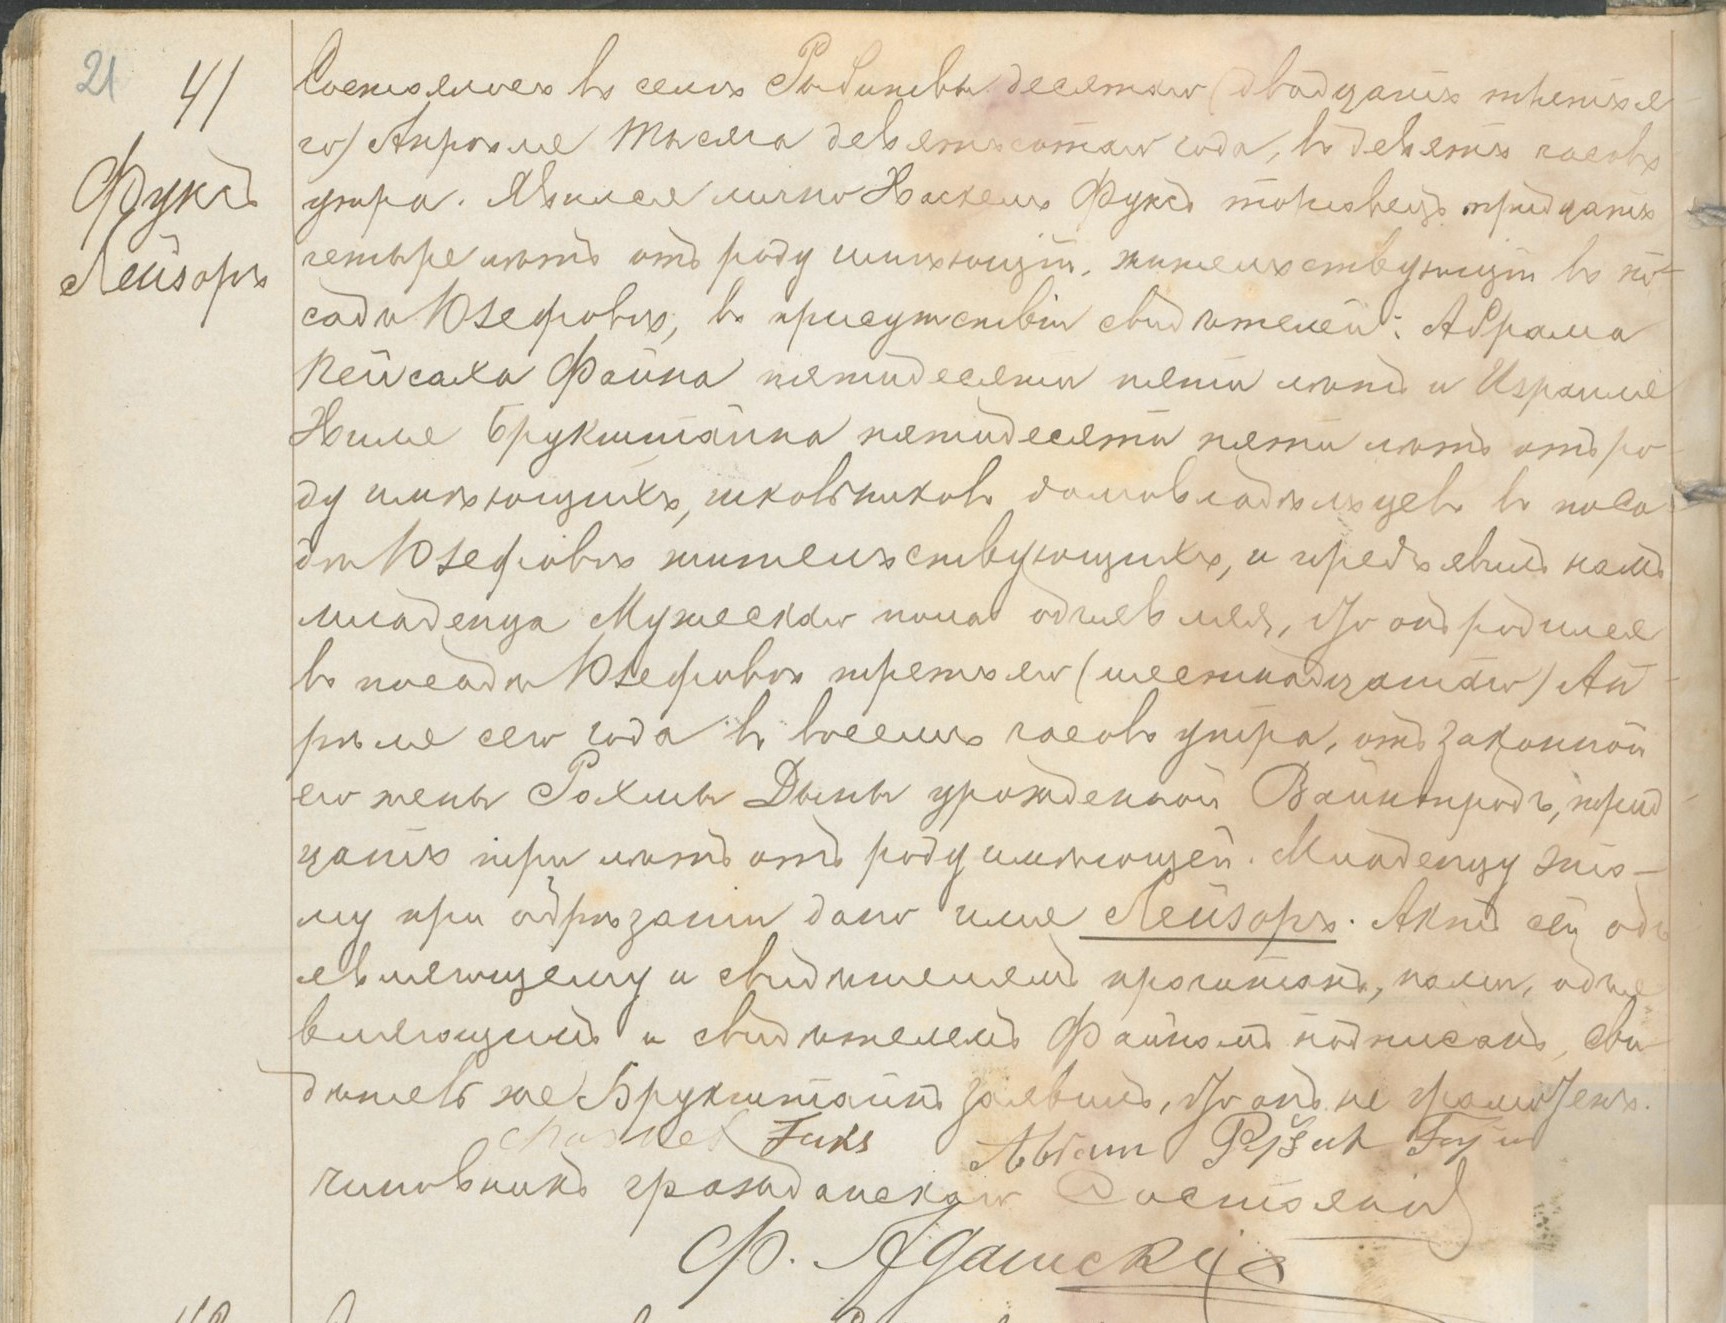 21
41
Фуксъ
Лейзоръ
Состоялось въ селѣ Рыбитвы десятаго (двадцать третья-
го) Апрѣля тысяча девятьсотаго года, въ девять часовъ
утра. Явился лично Хаскель Фуксъ торговецъ тридцать
четыре лѣтъ отъ роду имѣющій, жительствующій въ по-
садѣ Юзефовѣ, въ присутствіи свидѣтелей: Абрама
Пейсаха Файна пятидесяти пяти лѣтъ и Израиля
Хиля Брукштайна пятидесяти пяти лѣтъ отъ ро-
ду имѣющихъ, школьниковъ домовладѣльцевъ въ поса-
дѣ Юзефовѣ жительствующихъ, и предъявилъ намъ
младенца Мужескаго пола объявляя, что онъ родился
въ посадѣ Юзефовѣ третьяго (шестнадцатаго) Ап-
рѣля сего года въ восемь часовъ утра, отъ законной
его жены Рохли Дыны урожденной Вайнтродъ, трид-
цать три лѣтъ отъ роду имѣющей. Младенцу это-
му при обрѣзаніи дано имя Лейзоръ. Актъ сей объ-
являющему и свидѣтелямъ прочитанъ, нами, объя-
вляющимъ и свидѣтелемъ Файномъ подписанъ, сви-
дѣтель же Брукштайнъ заявилъ, что онъ не грамотенъ.
Fuks
Чиновникъ гражданскаго Состоянія
Ф. Адамскій